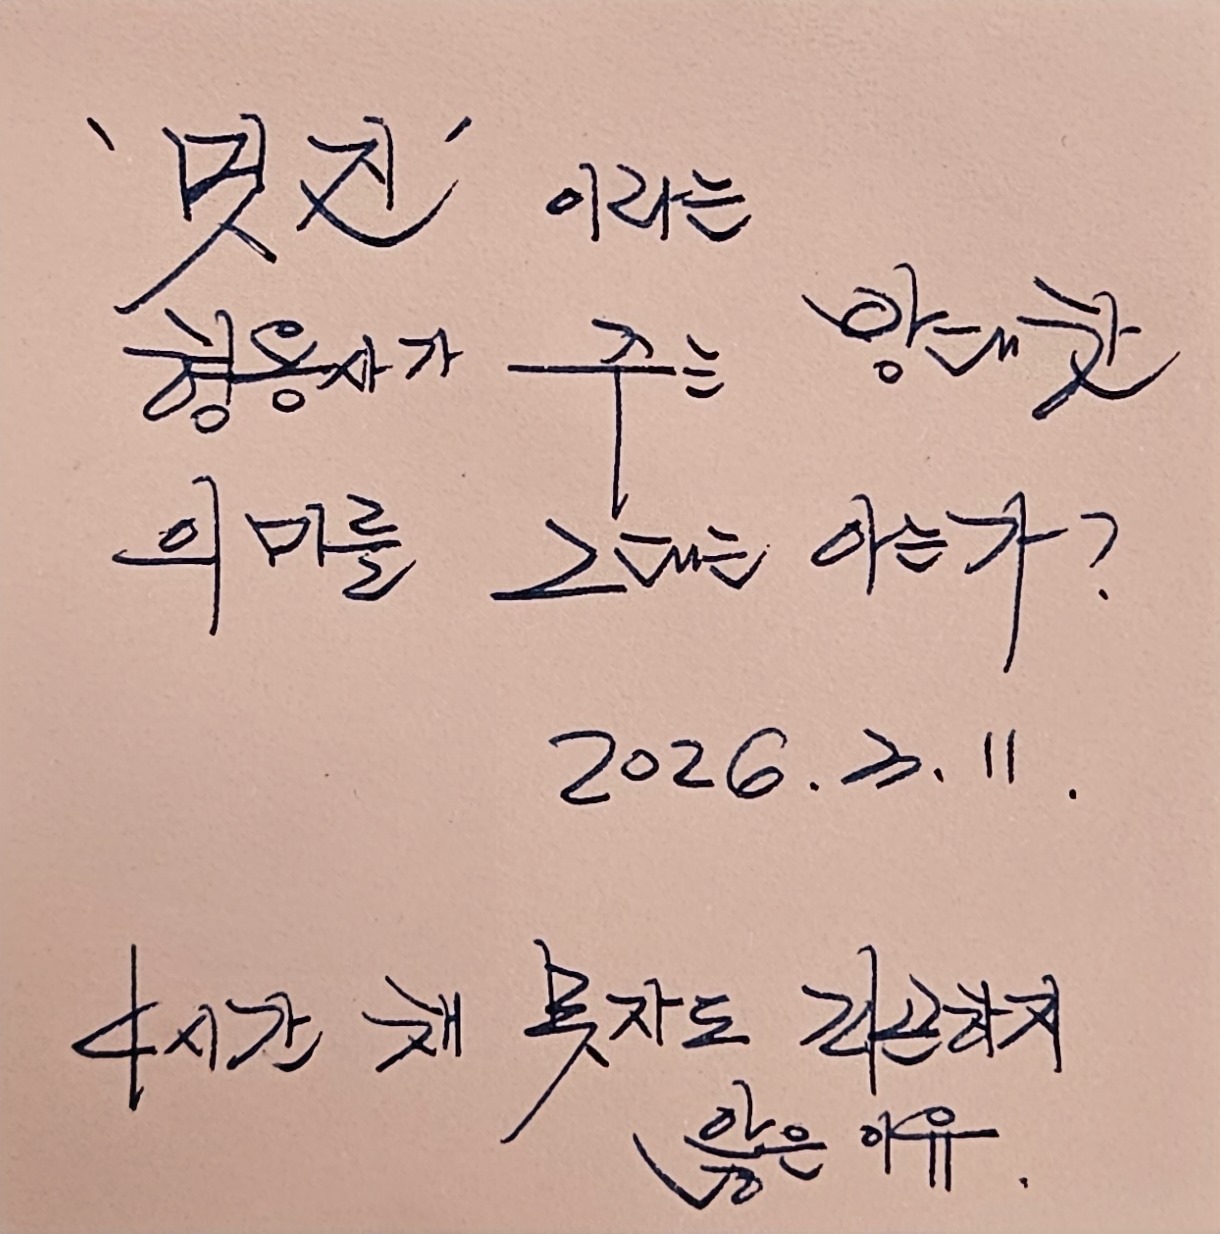 '멋진' 이라는
형용사가 주는 황대한
의미를 그대는 아는가?
2026. 3. 11.
4시간 채 못자도 피곤하지
않은 이유.